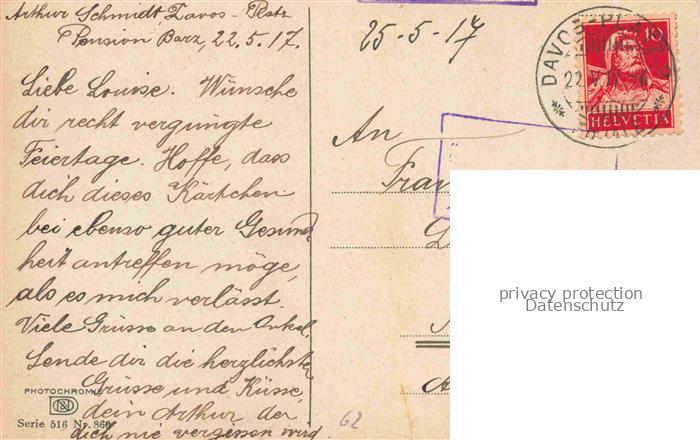 Arthur Schmidt Davos-Platz
Pension Barz, 22.5.17.
Liebe Louise. Wünsche
dir recht vergnügte
Feiertage. Hoffe, dass
dich dieses Kärtchen
bei ebenso guter Gesund-
heit antreffen möge,
als es mich verlässt.
Viele Grüsse an den Onkel.
Sende dir die herzlichsten
Grüsse und Küsse,
dein Arthur der
dich nie vergessen wird.
PHOTOCHROMIE
Serie 516 Nr. 860
62
25-5-17
DAVOS-PLATZ
22.V.17
10
HELVETIA
An
Frau
privacy protection
Datenschutz